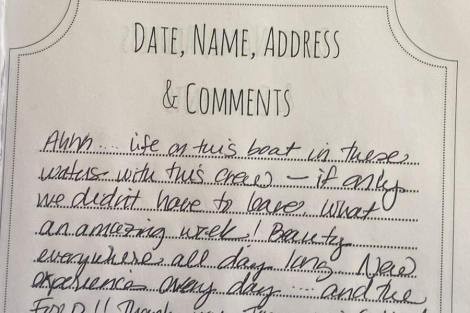 DATE, NAME, ADDRESS
& COMMENTS
Ahhh.... life on this boat in these
waters with this crew – if only
we didn't have to leave. What
an amazing week! Beauty
everywhere all day long. New
experiences every day.... and the
FOOD!! Thank you